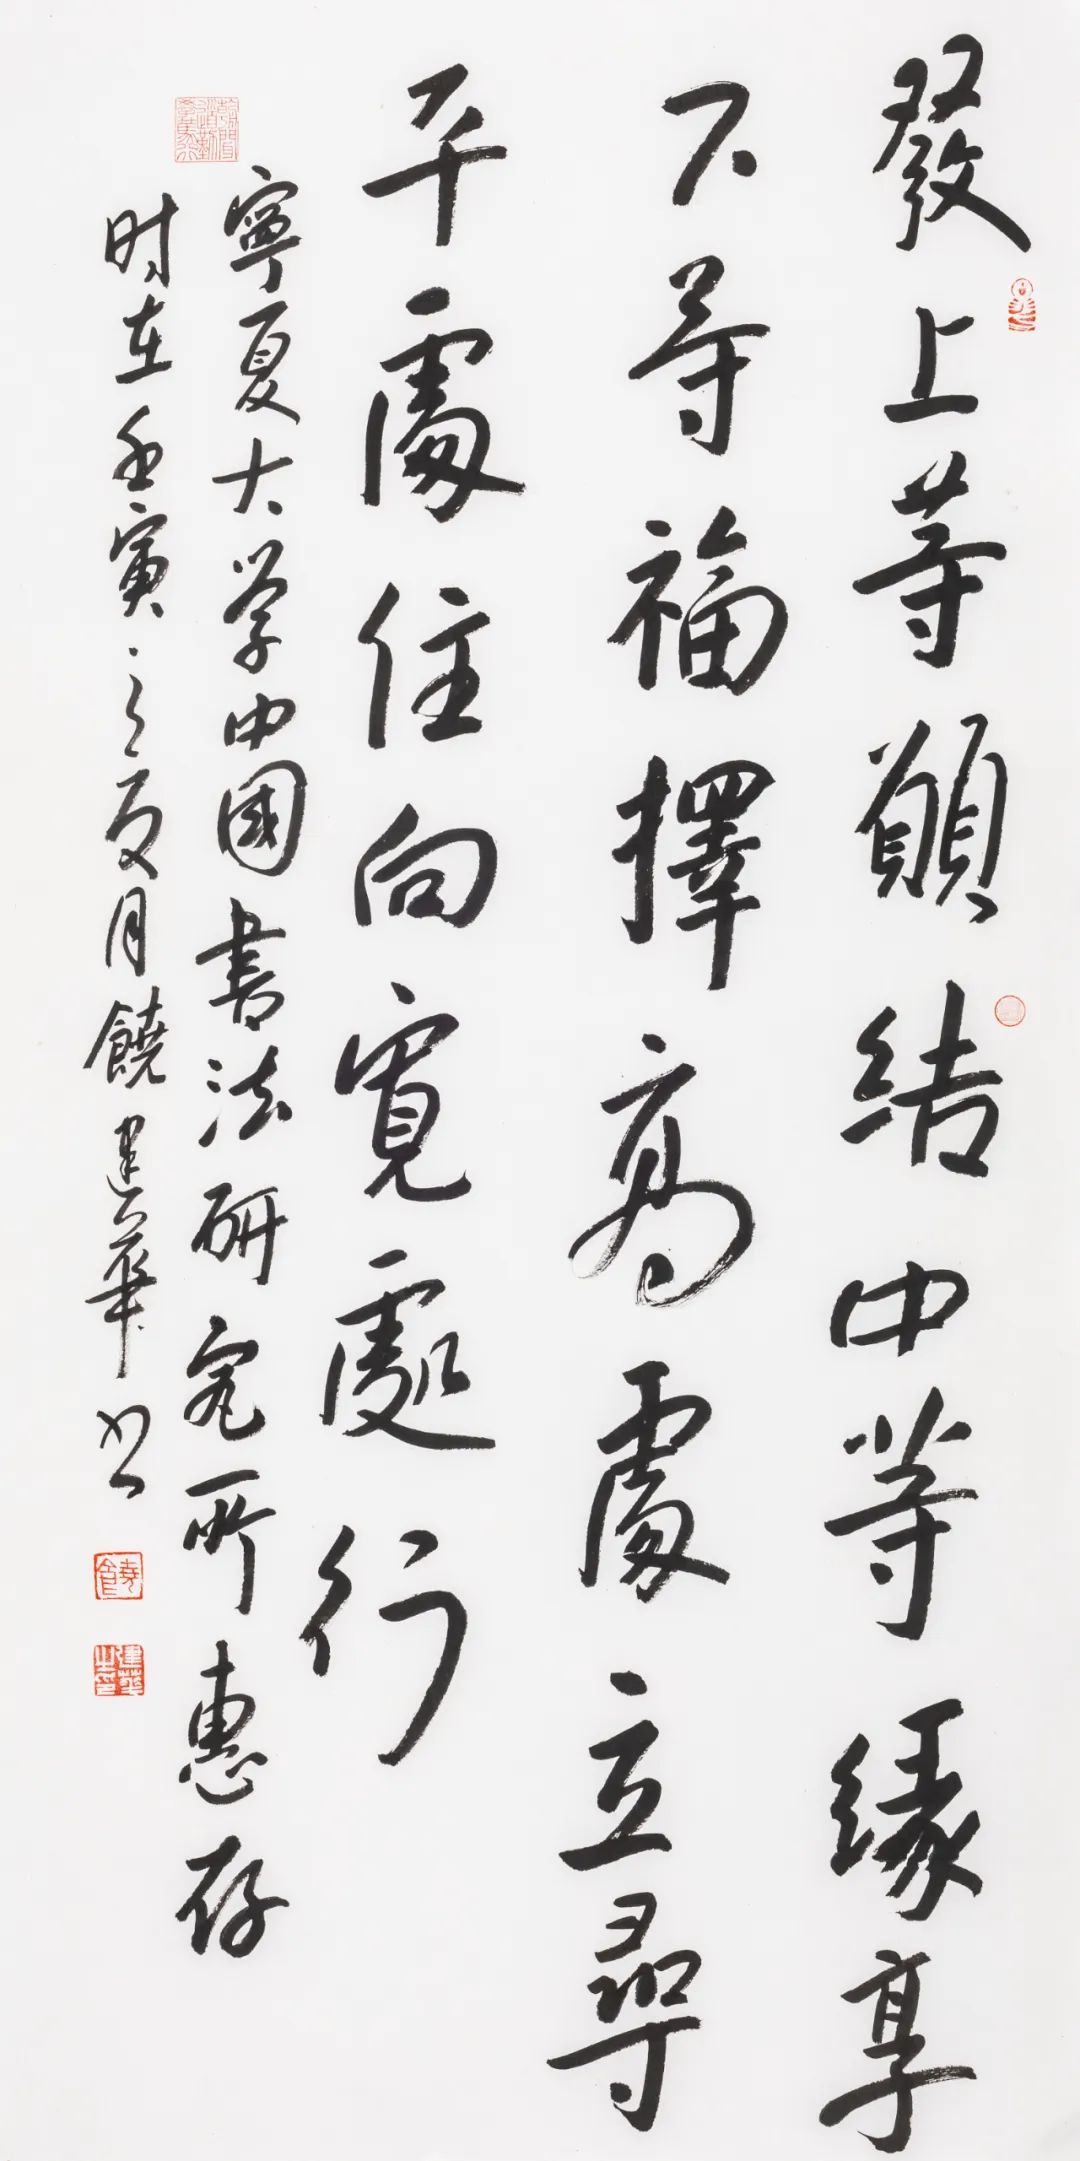 發上等願結中等緣享
下等福擇高處立尋
平處住向寬處行
寧夏大学中國書法研究所惠存
时在壬寅之夏月饒建華书
饒
建華之印